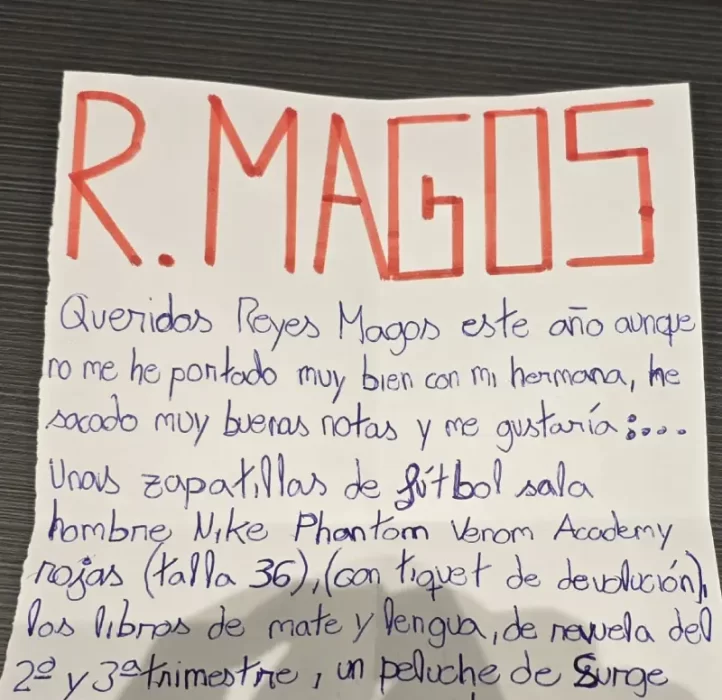 R. MAGOS
Queridos Reyes Magos este año aunque
no me he portado muy bien con mi hermana, he
sacado muy buenas notas y me gustaría:...
Unas zapatillas de fútbol sala
hombre Nike Phantom Venom Academy
rojas (talla 36), (con tiquet de devolución),
los libros de mate y lengua, de del
2º y 3º trimestre, un peluche de Surge